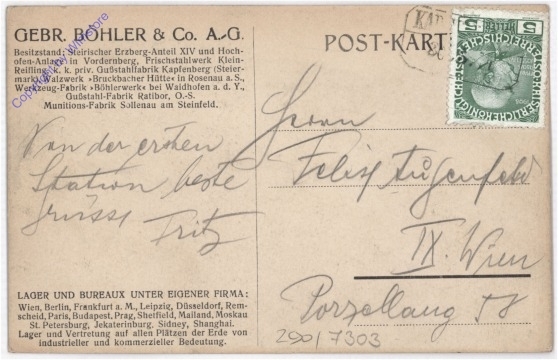 GEBR. BÖHLER & Co. A.-G.
Besitzstand: Steirischer Erzberg-Anteil XIV und Hoch-
ofen-Anlage in Vordernberg, Frischstahlwerk Klein-
Reifling, k. k. priv. Gußstahlfabrik Kapfenberg (Steier-
mark) Walzwerk »Bruckbacher Hütte« in Rosenau a. S.,
Werkzeug-Fabrik »Böhlerwerk« bei Waidhofen a. d. Y.,
Gußstahl-Fabrik Ratibor, O.-S.
Munitions-Fabrik Sollenau am Steinfeld.
Von der ersten
Station beste
Grüsse Fritz
LAGER UND BUREAUX UNTER EIGENER FIRMA:
Wien, Berlin, Frankfurt a. M., Leipzig, Düsseldorf, Rem-
scheid, Paris, Budapest, Prag, Sheffield, Mailand, Moskau
St. Petersburg, Jekaterinburg, Sidney, Shanghai.
Lager und Vertretung auf allen Plätzen der Erde von
industrieller und kommerzieller Bedeutung.
POST-KART
5 5
KAISERLICHE KÖNIGLICHE ÖSTERREICHISCHE
KAP
Herrn
Felix Augenfeld
IX. Wien
Porzellang 58
290/7303